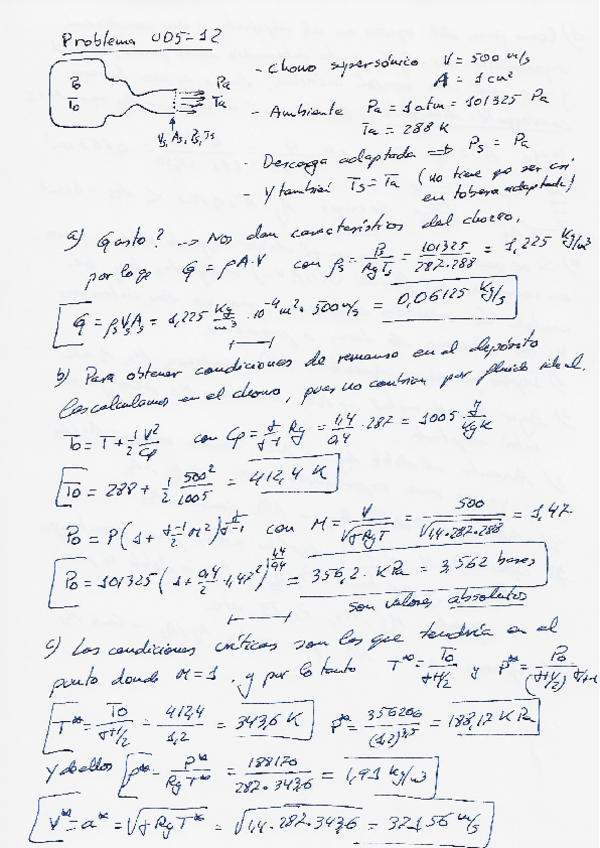 Problema UD5-12
Po
To
Pa
Ta
Vs, As, Ps, Ts
- Chorro supersónico V = 500 m/s
A = 1 cm²
- Ambiente Pa = 1 atm = 101325 Pa
Ta = 288 K
- Descarga adaptada ⇒ Ps = Pa
- Y también Ts = Ta (no tiene que ser así
en tobera adaptada)
a) Gasto? → Nos dan características del chorro,
por lo que G = ρA·V con ρs = P/RgTs = 101325/287·288 = 1,225 Kg/m³
G = ρsVsAs = 1,225 Kg/m³ · 10⁻⁴ m² · 500 m/s = 0,06125 Kg/s
b) Para obtener condiciones de remanso en el depósito
las calculamos en el chorro, pues no cambian por fluido ideal.
To = T + 1/2 V²/Cp con Cp = γ/γ-1 Rg = 1,4/0,4 · 287 = 1005 J/KgK
To = 288 + 1/2 500²/1005 = 412,4 K
Po = P(1 + γ-1/2 M²)^γ/γ-1 con M = V/√γRgT = 500/√1,4·287·288 = 1,47
Po = 101325 (1 + 0,4/2 · 1,47²)^1,4/0,4 = 356,2 · KPa = 3,562 bares
son valores absolutos
c) Las condiciones críticas son las que tendría en el
punto donde M = 1, y por lo tanto T* = To/γ+1/2 y P* = Po/(γ+1/2)^γ/γ-1
T* = To/γ+1/2 = 412,4/1,2 = 343,6 K P* = 356206/(1,2)^3,5 = 188,17 KPa
Y de ellos ρ* = P*/RgT* = 188170/287·343,6 = 1,91 Kg/m³
V* = a* = √γRgT* = √1,4·287·343,6 = 371,56 m/s